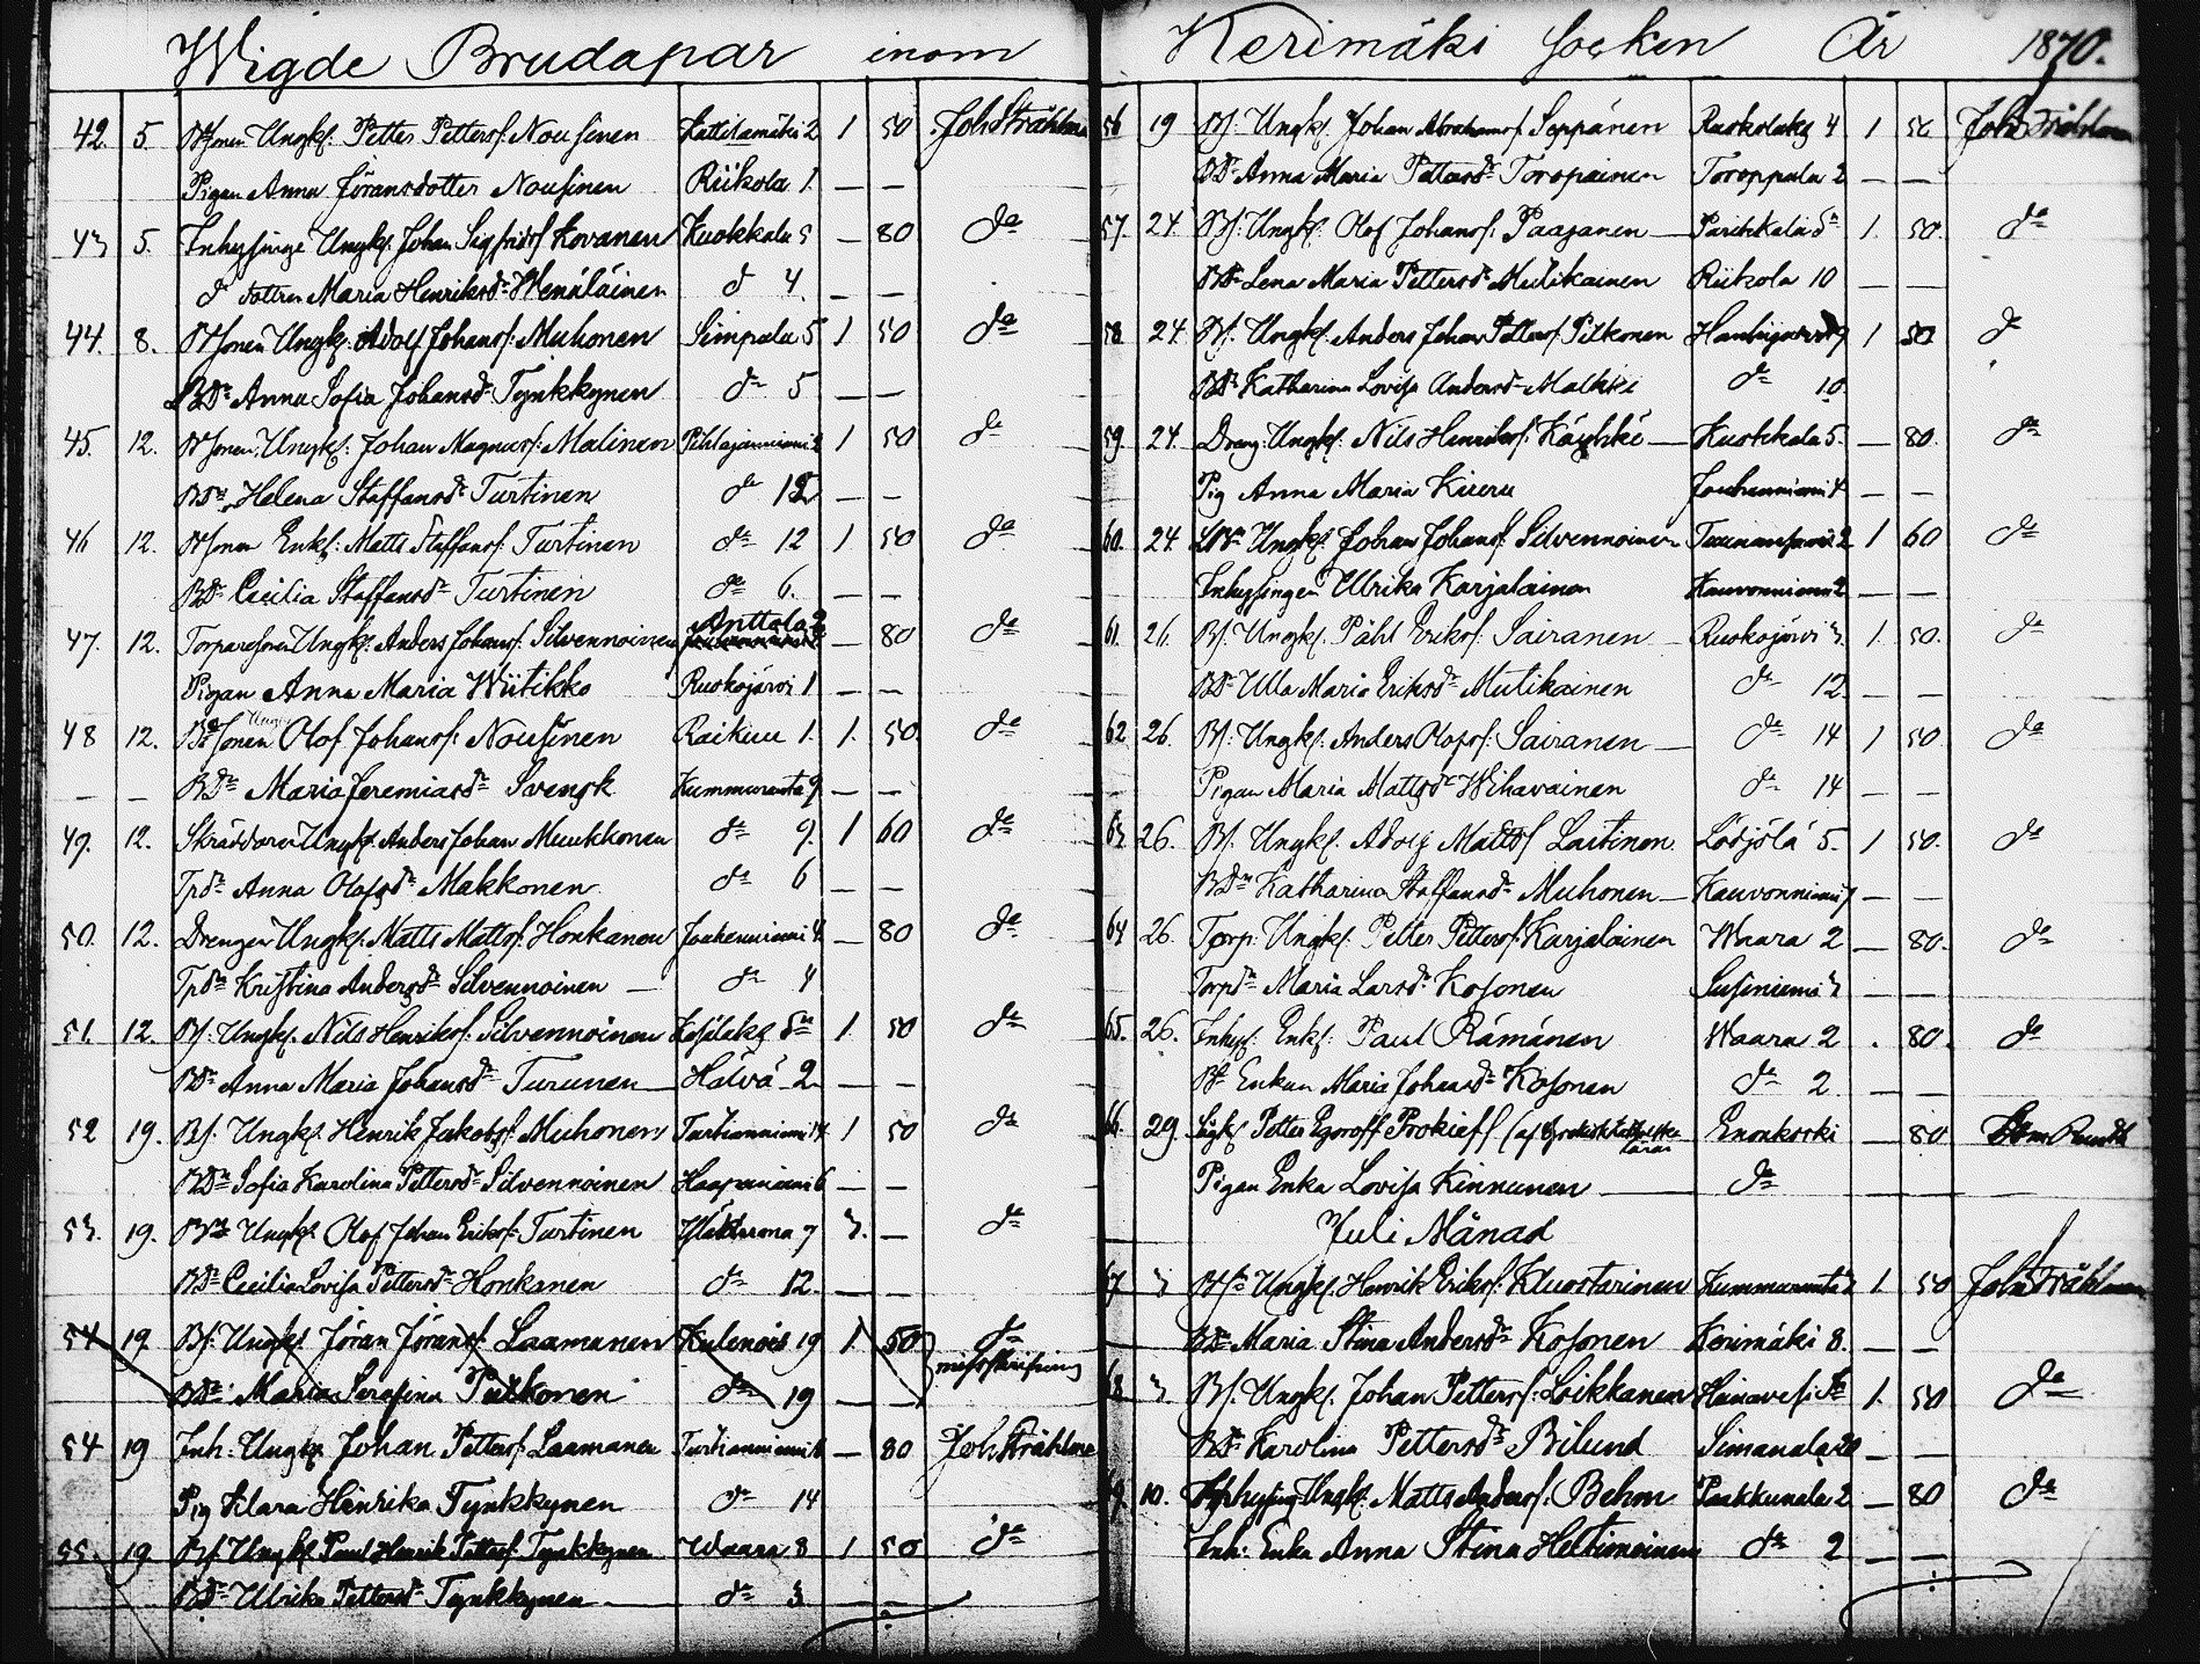 Wigde Brudapar inom
42. 5 Bsonen Ungk. Petter Petters. Nousinen Kattilamäki 2 1 50 Joh Stråhlma
Pigan Anna Göransdotter Nousinen Riikola 1. — —
43 5. Inhysinge Ungk. Johan Sigfrids. Kovanen Kuokkala 5 — 80 do
do dottren Maria Henriksdr Wenäläinen do 4 — —
44. 8. Bsonen Ungk. Adolf Johans. Muhonen Simpala 5 1 50 do
BDr Anna Sofia Johansdr Tynkkynen do 5 — —
45. 12. Bsonen, Ungk. Johan Magnus. Malinen Pihlajaniemi 2 1 50 do
BDr Helena Staffansdr Turtinen do 12 — —
46 12. Bsonen Enk. Matts Staffans. Turtinen do 12 1 50 do
BDr Cecilia Staffansdr Turtinen do 6. — —
47. 12. Torparesonen Ungk. Anders Johans. Silvennoinen Anttola 2 — 80 do
Pigan Anna Maria Wiitikko Ruokojärvi 1 — —
48 12. Bsonen Ungk Olof Johans. Nousinen Raikuu 1. 1. 50. do
— — BDr Maria Jeremiasdr Svensk Kummuranta 9 — —
49. 12. Skräddaren Ungk. Anders Johan Muukkonen do 9. 1 60 do
Tpdr Anna Olofsdr Makkonen do 6 — —
50. 12. Drengen Ungk. Matts Matts. Honkanen Jouhenniemi 4 — 80 do
Tpdr Kristina Andersdr Silvennoinen — do 4
51. 12. Bs. Ungk. Nils Henriks. Silvennoinen 1. 50 do
BDr Anna Maria Johansdr Turunen — Halvä 2 — —
52 19. Bs. Ungk. Henrik Jakobs. Muhonen Turtianniemi 14 1 50 do
BDr Sofia Karolina Pettersdr Silvennoinen Haapaniemi 6 — —
53. 19. Ungk. Olof Johan Eriks. Turtinen 7 3. — do
BDr Cecilia Lovisa Pettersdr Honkanen do 12. — —
54 19 Bs. Ungk. Göran Görans. Laamanen Kulennois 19 1 50 do
BDr Maria Serafina Pulkonen do 19 — — misskrifning
54 19 Inh. Ungk. Johan Petters. Laamanen Turtianniemi — 80 Joh Stråhlma
Pig Klara Henrika Tynkkynen do 14
55. 19 Bs. Ungk. Paul Henrik Petters. Tynkkynen Waara 8 1 50 do
BDr Ulrika Pettersdr Tynkkynen — do 3 — —
Kerimäki Socken År 1870.
56 19 Bs. Ungk. Johan Abrahams. Seppänen Ruokolaks 4 1 50 Joh Stråhlman
BDr Anna Maria Pettersdr Toropainen Toroppala 2 — —
57. 24. Bs. Ungk. Olof Johans. Paajanen — Parikkala Sn 1. 50. do
BDr Lena Maria Pettersdr Mutikainen Riikola 10 — —
58 24. Bs. Ungk. Anders Johan Petters. Pitkonen 9 1 50 do
BDr Katharina Lovisa Andersdr Malkki do 10
59. 24. Dreng. Ungk. Nils Henriks. Käyhkö — Kuokkala 5. — 80. do
Pig Anna Maria Kiuru Jouhenniemi 4 — —
60. 24. Ungk. Johan Johans. Silvennoinen 2 1 60 do
Inhysingen Ulrika Karjalainen Kauvonniemi 2 — —
61. 26. Bs. Ungk. Påhl Eriks. Sairanen — Ruokojärvi 3. 1. 50. do
BDr Ulla Maria Eriksdr Mutikainen do 12 — —
62 26. Bs. Ungk. Anders Olofs. Sairanen — do 14 1 50 do
Pigan Maria Mattsdr Wihavainen do 14 — —
63 26. Bs. Ungk. Adolf Matts. Laitinen. Lödjölä 5. 1 50. do
BDr Katharina Staffansdr Muhonen — Kauvonniemi 7 — —
64 26. Torp. Ungk. Petter Petters. Karjalainen Waara 2 — 80. do
Torpdr Maria Larsdr Kosonen Susiniemi 3 — —
65. 26. Inhys. Enk. Paul Rämänen Waara 2 . 80. do
Enkan Maria Johansdr Kosonen do 2. — —
66. 29. Ungk. Petter Egoroff Prokieff (af Grekisk katholska läran Enonkoski — 80
Pigan Enka Lovisa Kinnunen — do — —
Juli Månad
67. 3 Ungk. Henrik Eriks. Kluostarinen Kummuranta 2 1. 50 Joh Stråhlman
BDr Maria Stina Andersdr Kosonen Kerimäki 8. — —
68 3. Bs. Ungk. Johan Petters. Loikkanen Heinävesi Sn 1. 50 do
BDr Karolina Pettersdr Bilund Simanala 20 — —
69. 10. Inhysing Ungk. Matts Anders. Behm Paakkunala 2 — 80 do
Inh. Enka Anna Stina Heltimoinen do 2 — —